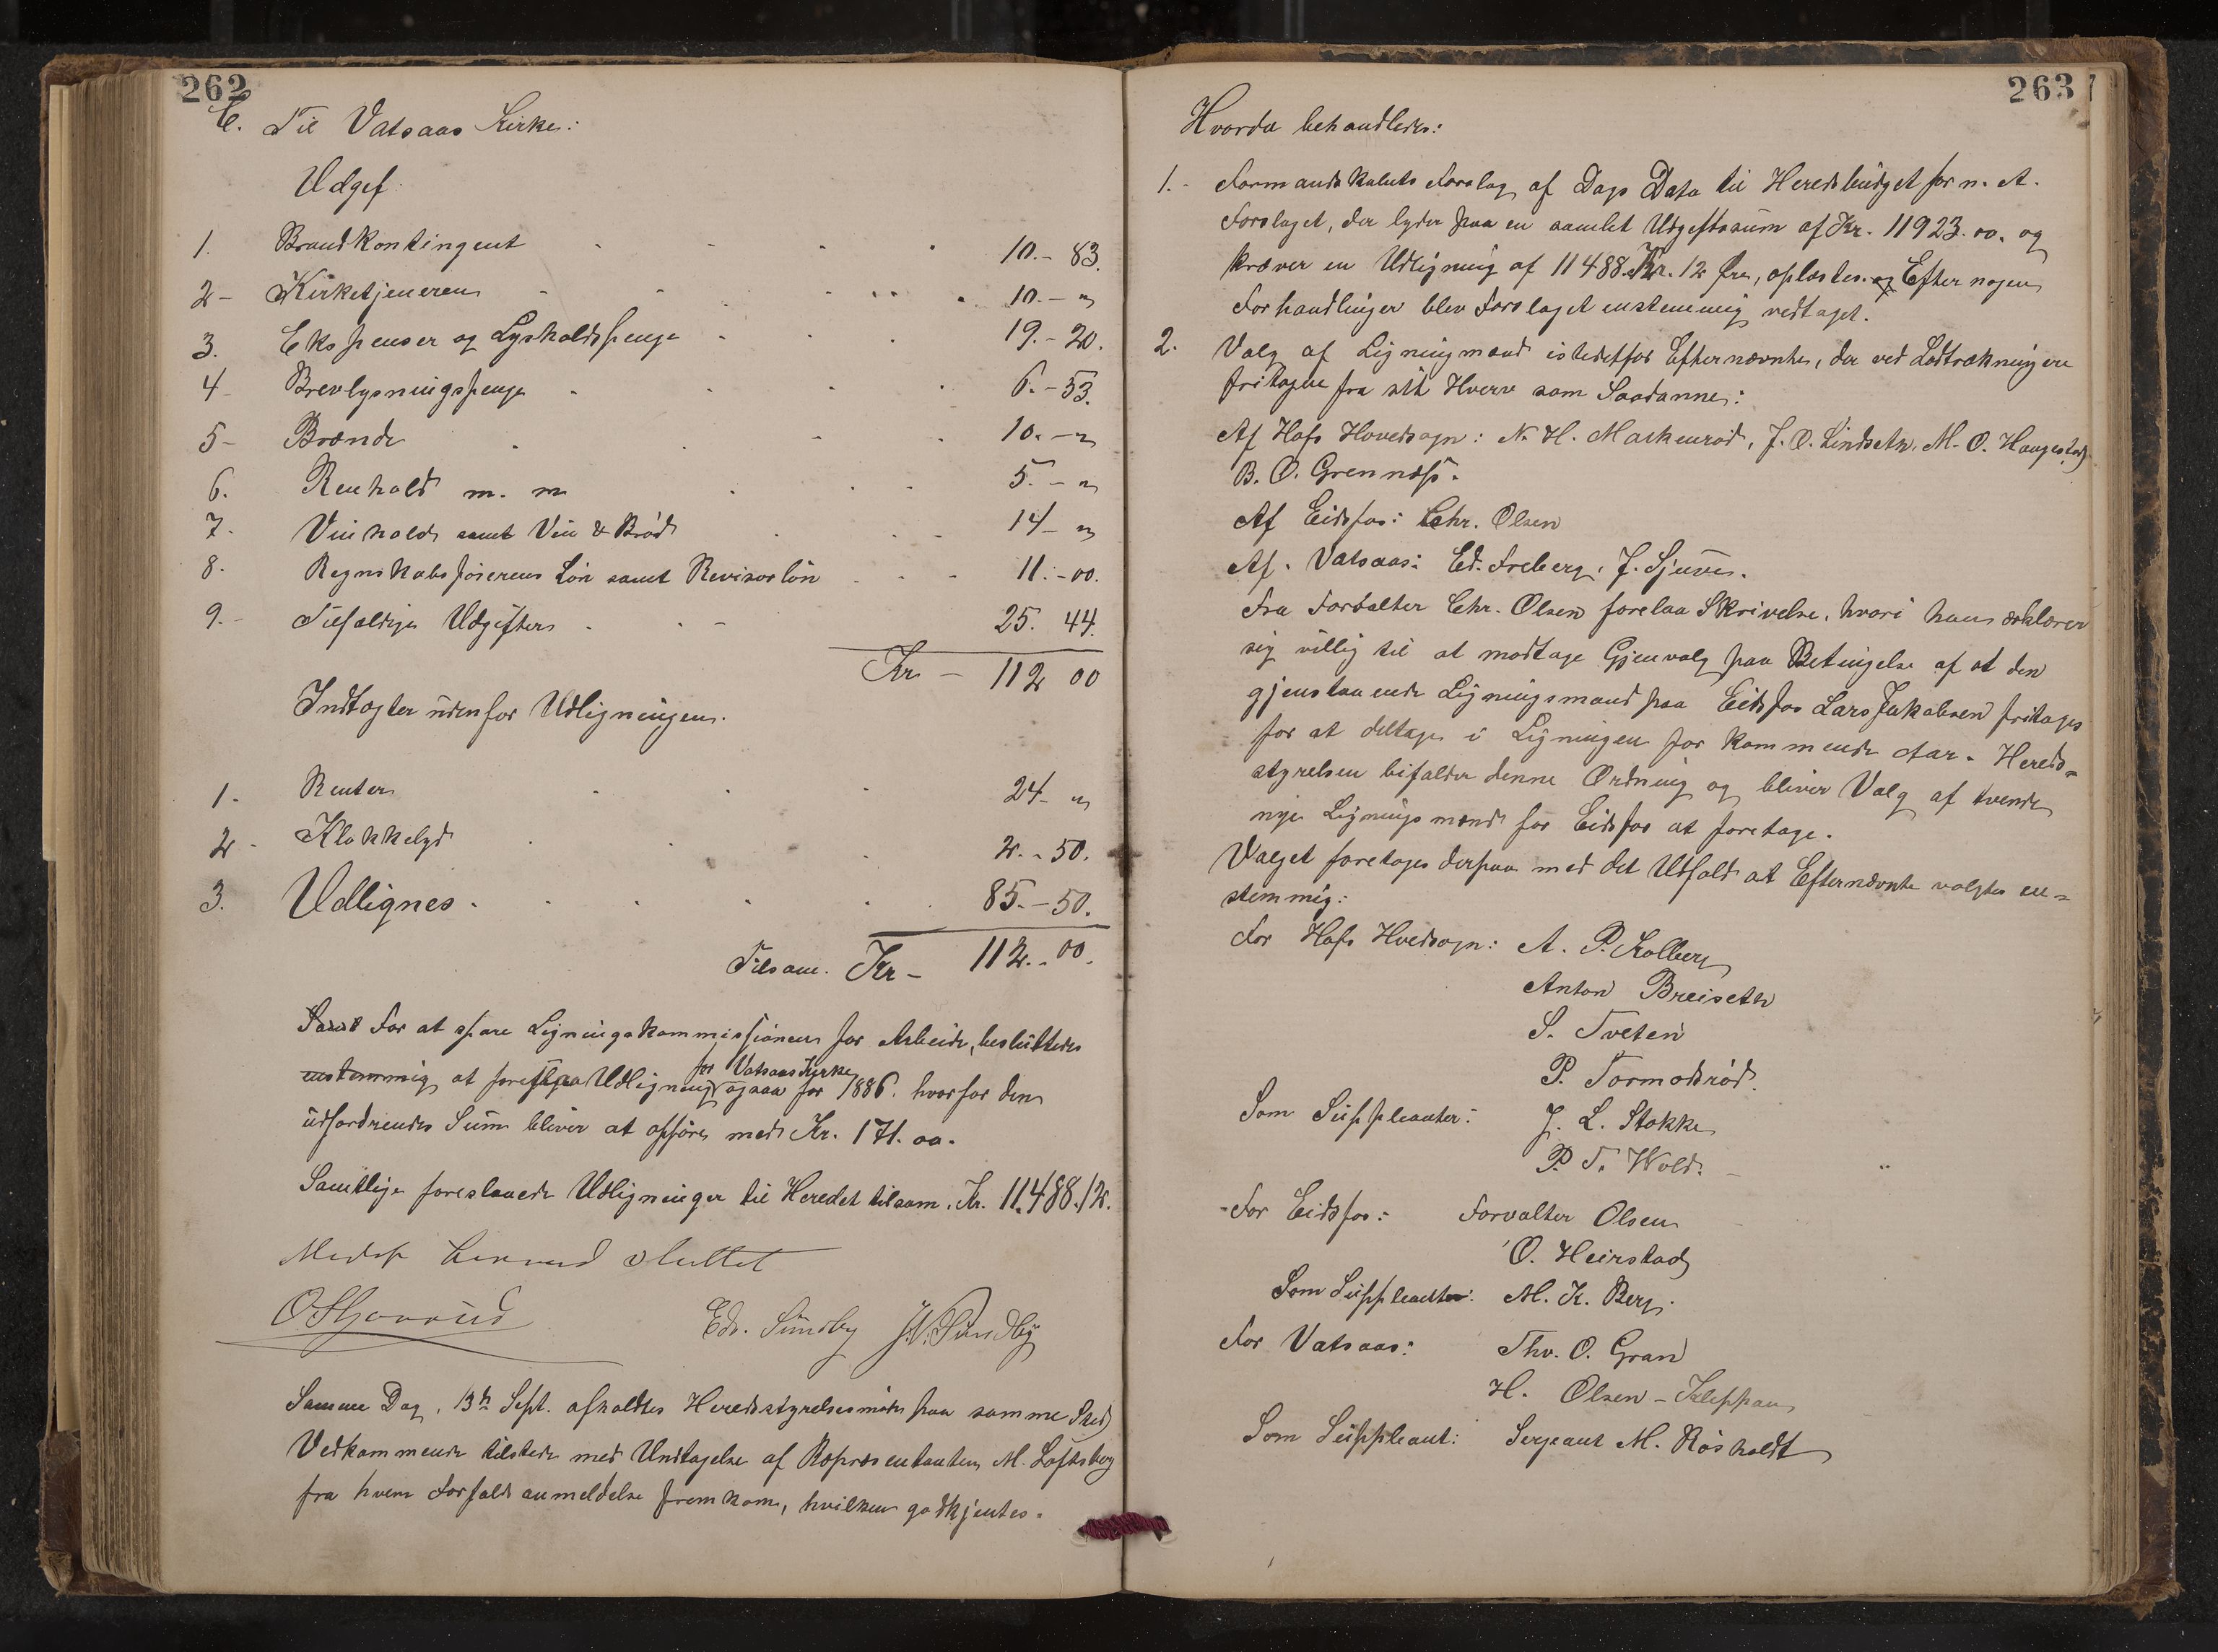 262
C. Til Vatsaas Kirke:
Udgif.
1. Brandkontingent 10.- 83.
2- Kirketjeneren 10.- "
3. Ekspenser og Lysholdspenge 19.- 20.
4- Brevlysningspenge 6.- 53.
5- Brænde 10.- "
6. Renhold m. m 5.- "
7. Vinhold samt Vin & Brød 14- "
8. Regnskabsførerens Løn samt Revisorløn 11.-00.
9.- Tilfældige Udgifter 25. 44.
Kr - 112 00
Indtægter udenfor Udligningen.
1. Renter 24- "
2- Klokkelyd 2.- 50.
3. Udlignes 85.- 50.
Tilsam. Kr - 112.- 00.
Samt For at spare Ligningskommissionen for Arbeide, besluttedes
enstemmig at foreslaa Udligning for Vatsaas Kirke ogsaa for 1886. hvorfor den
udfordrende Sum bliver at opføre med Kr. 171.00.
Samtlige foreslaaede Udligninger til Heredet tilsam. Kr. 11,488.12.
Mødet hermed sluttet
Edv. Sundby J.N. Sundby
Samme Dag, 13de Sept. afholdtes Heredsstyrelsesmøde paa samme Sted
Vedkommende tilstede med Undtagelse af Repræsentanten M. Loftsberg
fra hvem Forfaldsanmeldelse fremkom, hvilken godkjentes.
263
Hvorda behandledes:
1.- Formandskabets Forslag af Dags Dato til Heredsbudget for n. A.
Forslaget, der lyder paa en samlet Udgiftssum af Kr. 11923.00. og
kræver en Udligning af 11488. Kr. 12 Øre, oplæstes. og Efter nogen
Forhandlinger blev Forslaget enstemmig vedtaget.
2. Valg af Ligningmænd istedetfor Efternævnte, der ved Lodtrækning ere
fritagne fra sit Hverv som Saadanne:
Af Hofs Hovedsogn: N. H. Markenrød, J. O. Lindseth, M. O. Haugestad
B. O. Grennæss.
Af Eidsfos: Chr. Olsen
Af. Vatsaas: Ed. Freberg, J. Sjuve.
Fra Forvalter Chr. Olsen forelaa Skrivelse, hvori han erklærer
sig villig til at modtage Gjenvalg paa Betingelse af at den
gjenstaaende Ligningsmand paa Eidsfos Lars Jakobsen fritages
for at deltage i Ligningen for kommende Aar. Hereds-
styrelsen bifalder denne Ordning og bliver Valg af tvende
nye Ligningsmænd for Eidsfos at foretage.
Valget foretages derpaa med det Udfald at Efternævnte valgtes en-
stemmig:
For Hofs Hvedsogn: A. P. Kolberg
Anton Breiseth
S. Tveten
P. Tormodsrød.
Som Suppleanter: J. L. Stokke
P. T. Wold.
For Eidsfos: Forvalter Olsen
O. Heirstad
Som Suppleanter: M. K. Berg.
For Vatsaas: Thv. O. Gran
H. Olsen - Kleppan
Som Suppleant: Sergeant M. Røsholdt